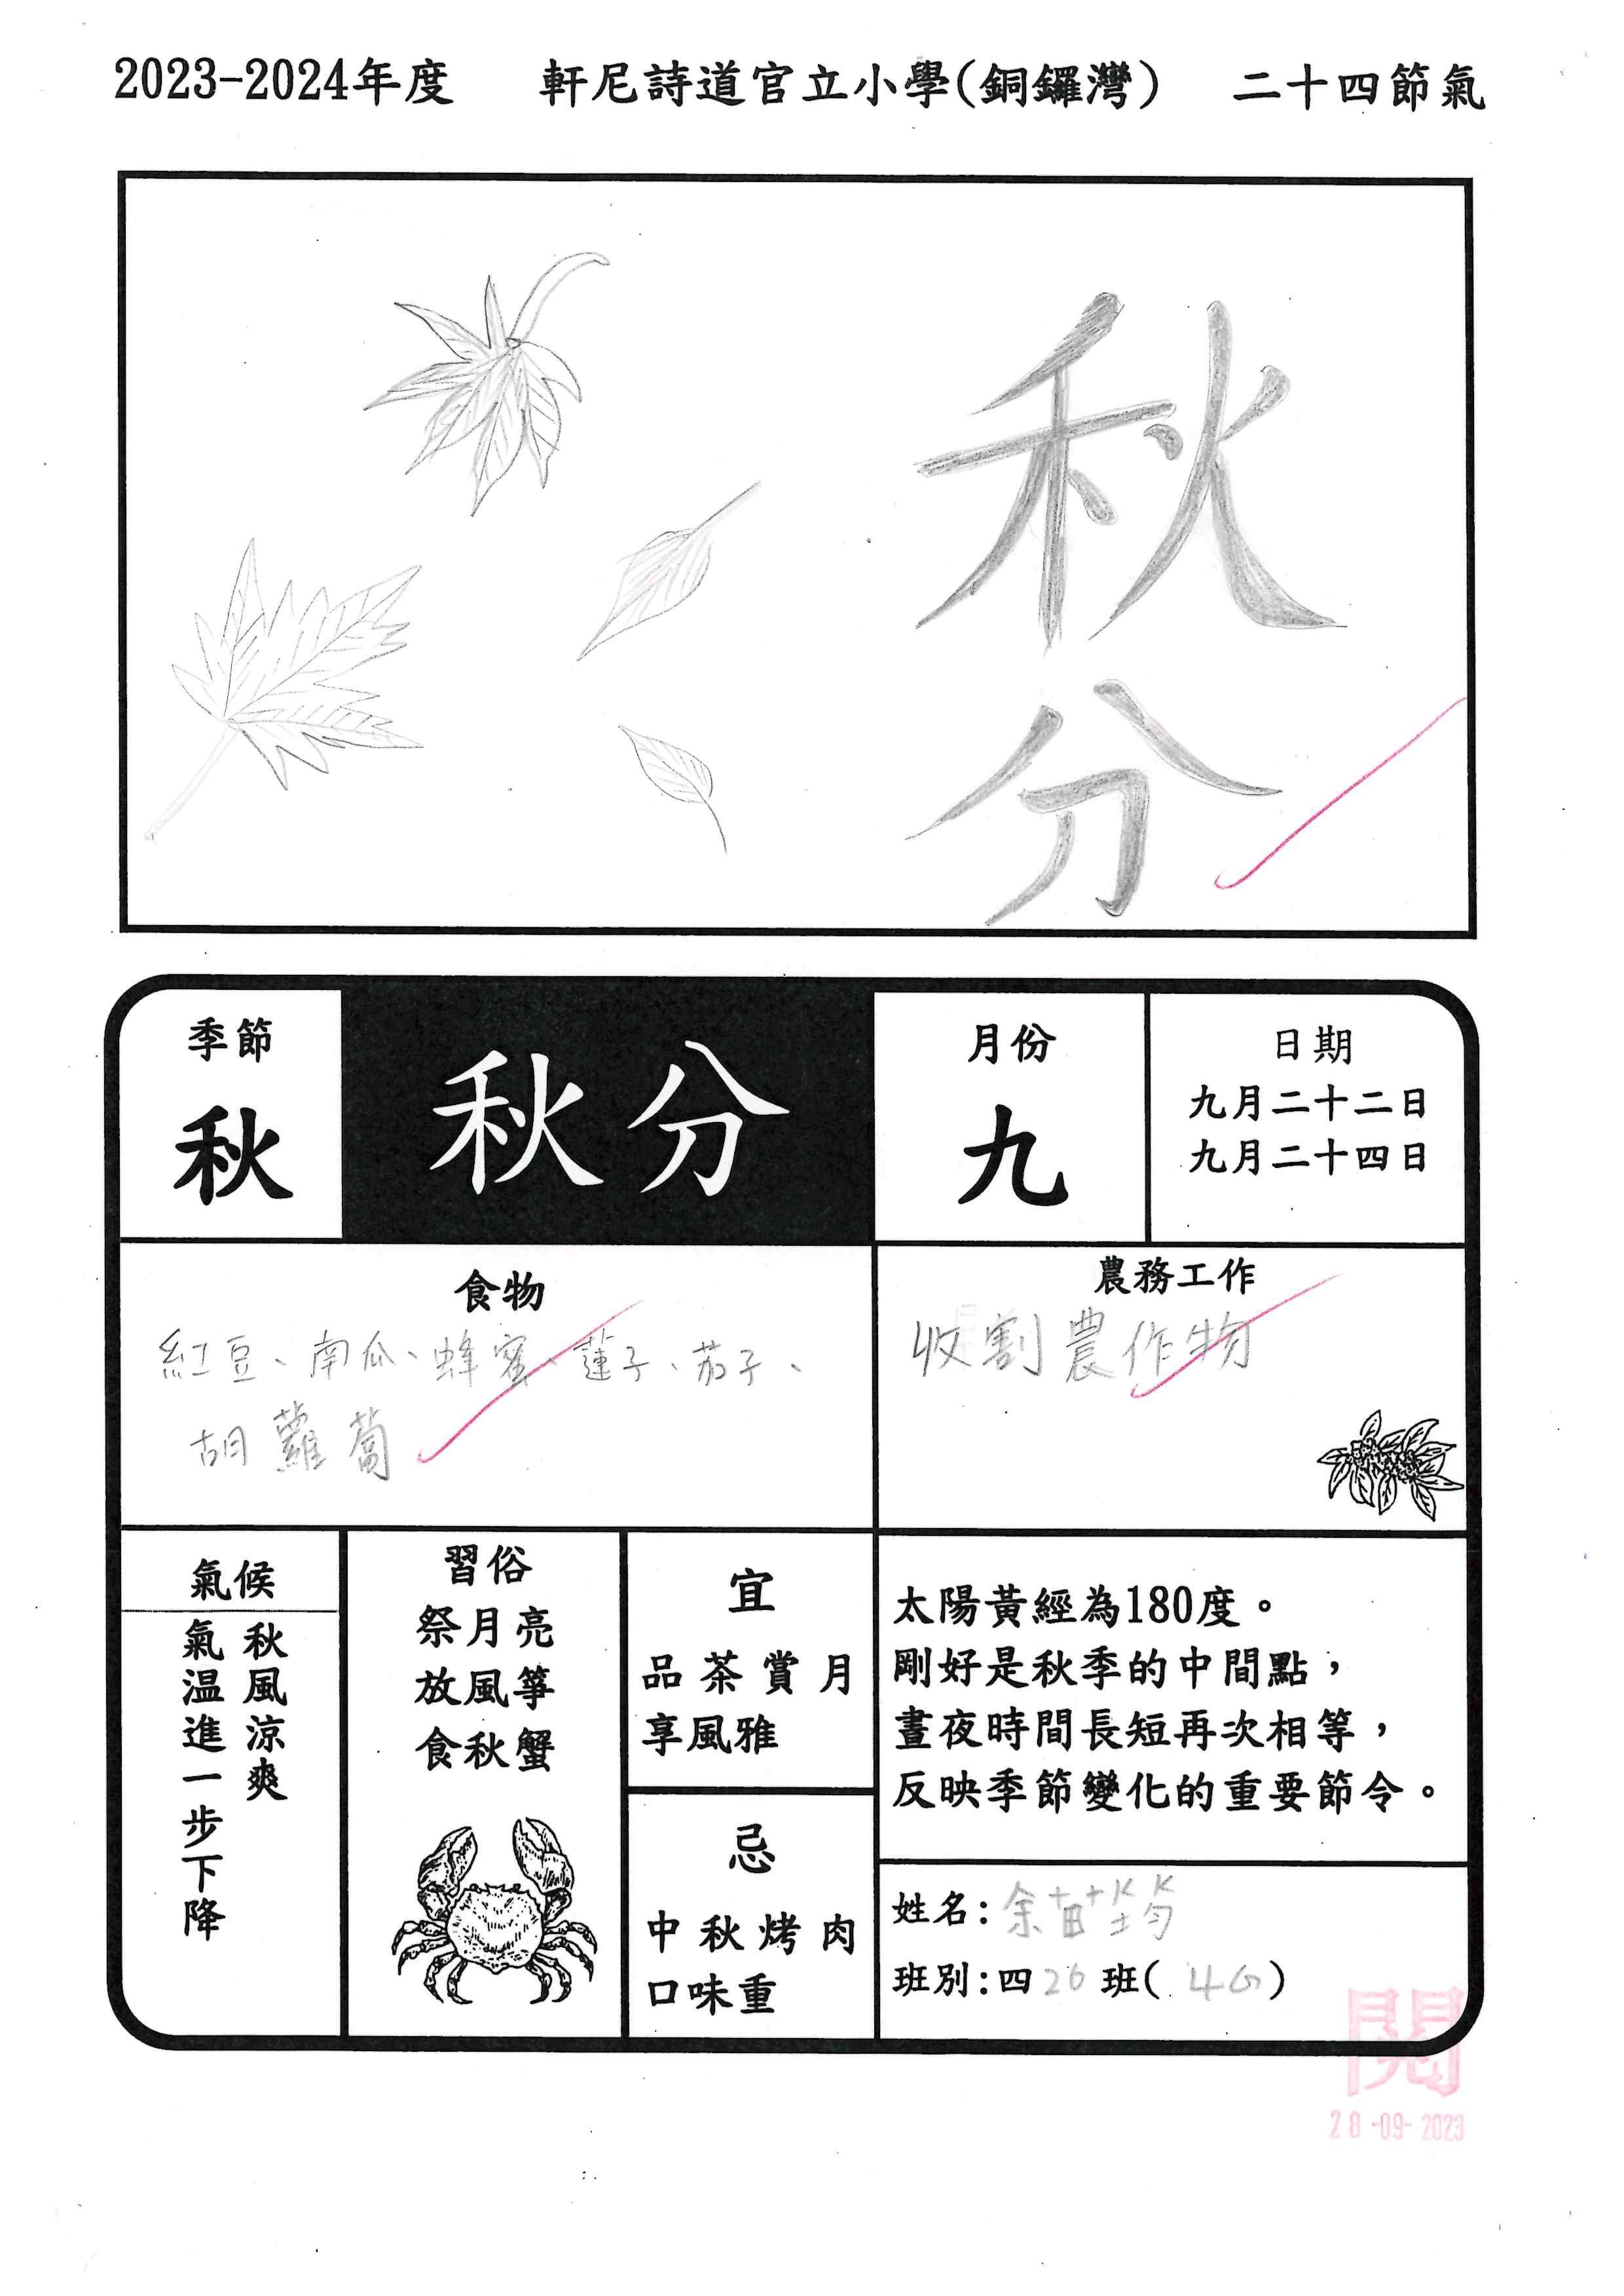 2023-2024年度 軒尼詩道官立小學(銅鑼灣) 二十四節氣
秋
分
季節
秋
秋分
月份
九
日期
九月二十二日
九月二十四日
食物
紅豆、南瓜、蜂蜜、蓮子、茄子、
胡蘿蔔
農務工作
收割農作物
氣候
秋風涼爽
氣温進一步下降
習俗
祭月亮
放風箏
食秋蟹
宜
品茶賞月
享風雅
忌
中秋烤肉
口味重
太陽黃經為180度。
剛好是秋季的中間點，
晝夜時間長短再次相等，
反映季節變化的重要節令。
姓名:余苗筠
班別:四 班( 4G )
閱
28-09-2023